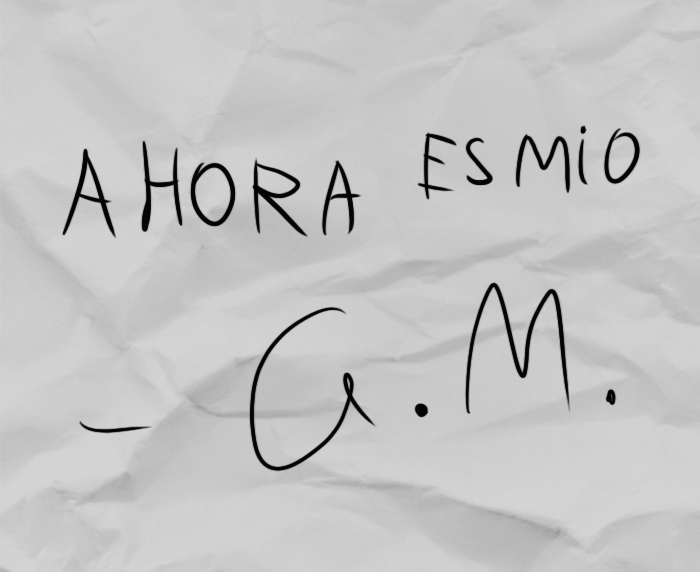 AHORA ES MiO
- G.M.